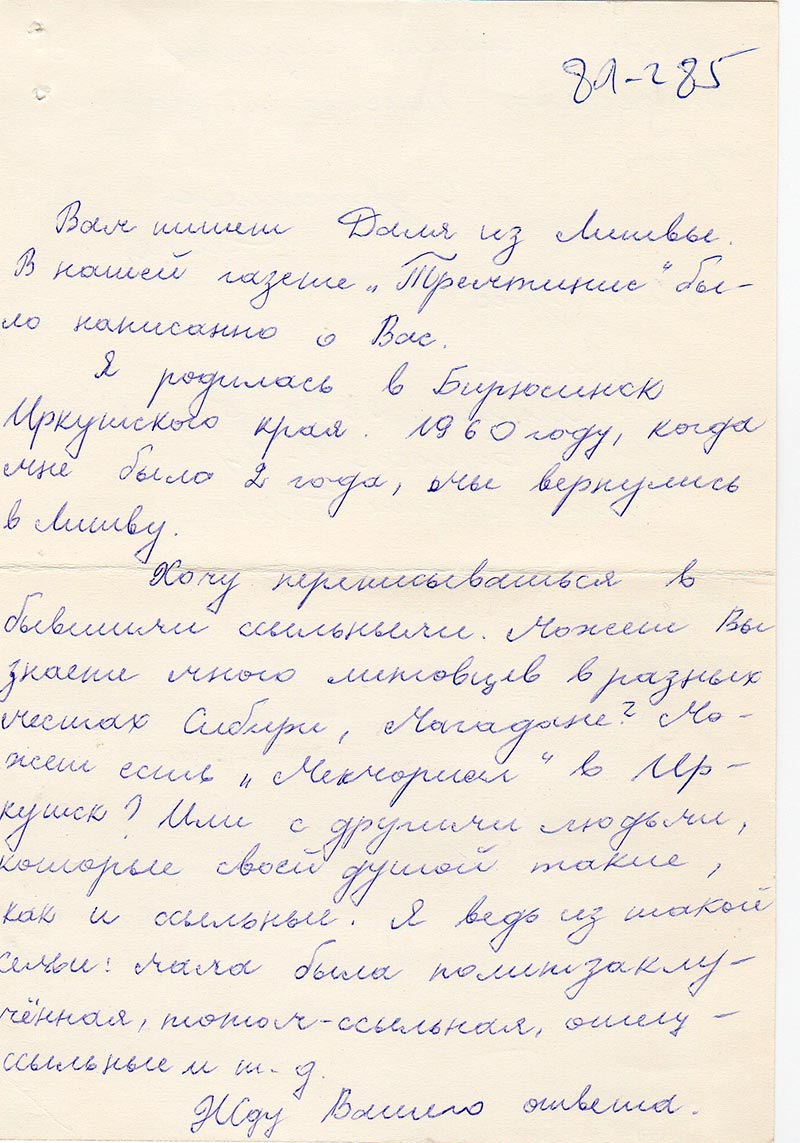 81-285
Вам пишет Даля из Литвы.
В нашей газете „Тремтинис" бы-
ло написанно о Вас.
Я родилась в Бирюсинск
Иркутского края. 1960 году, когда
мне было 2 года, мы вернулись
в Литву.
Хочу переписываться в
бывшими ссыльными. Может Вы
знаете много литовцев в разных
местах Сибири, Магадане? Мо-
жет есть „Мемориал" в Ир-
кутск? Или с другими людьми,
которые своей душой такие,
как и ссыльные. Я ведь из такой
семьи: мама была политзаклу-
чённая, потом-ссыльная,
ссыльные и т. д.
Жду Вашего ответа.